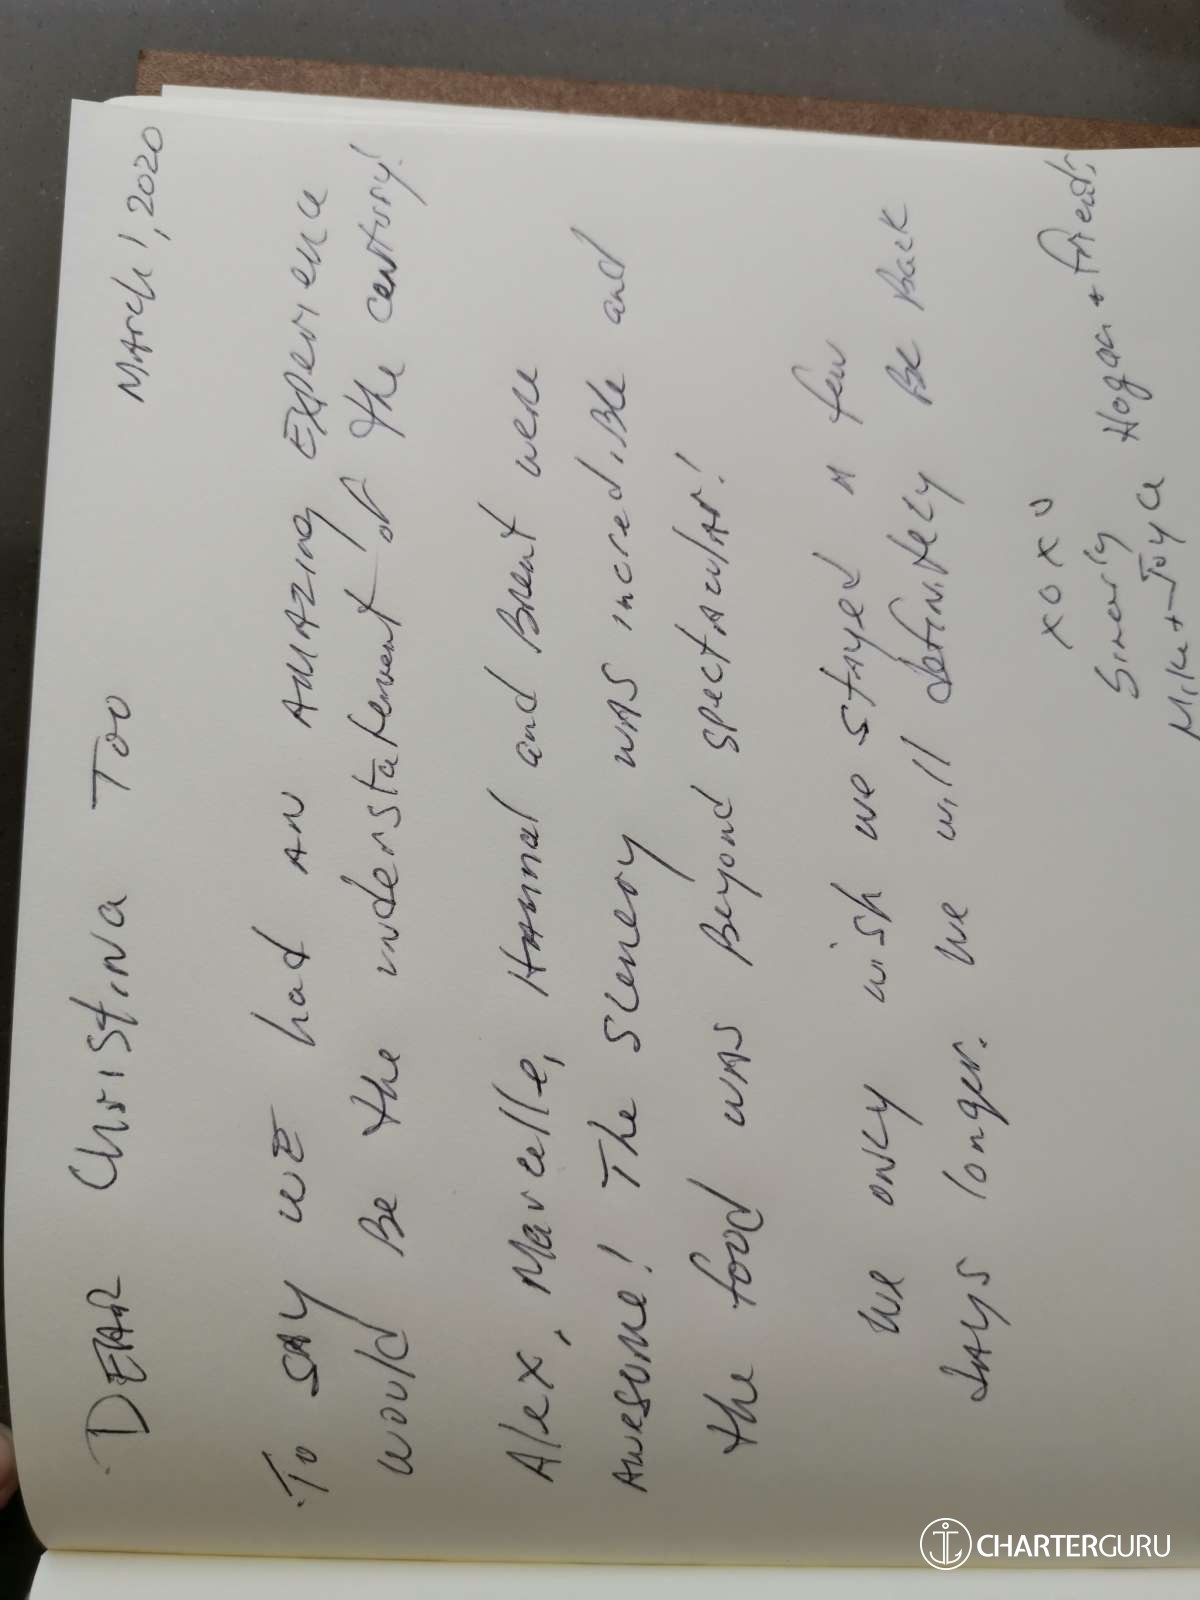 DEAR Christina Too
MArch 1, 2020
To SAY WE had AN AMAZING EXPERIENCE
would Be the understatement of the century!
Alex, Marcelle, Hannal and Brent were
AWESOME! The scenery WAS incrediBle and
the food WAS Beyond spectAculAr!
We only wish we stayed A few
DAYS longer. We will definitely Be Back
XOXO
Sincerly
Mike + Joyce Hogan + friends
CHARTERGURU